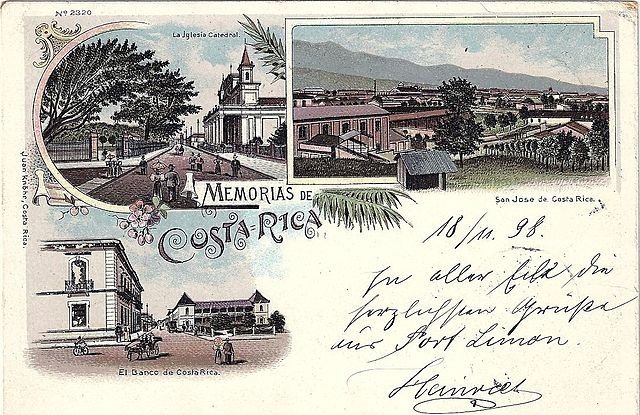 Nº 2320
La Iglesia Catedral.
San Jose de Costa Rica.
MEMORIAS DE
COSTA-RICA
Juan Knöhr, Costa Rica.
El Banco de Costa Rica.
18/11. 98.
In aller Eile die
herzlichsten Grüße
aus Port Limon.
Heinrich